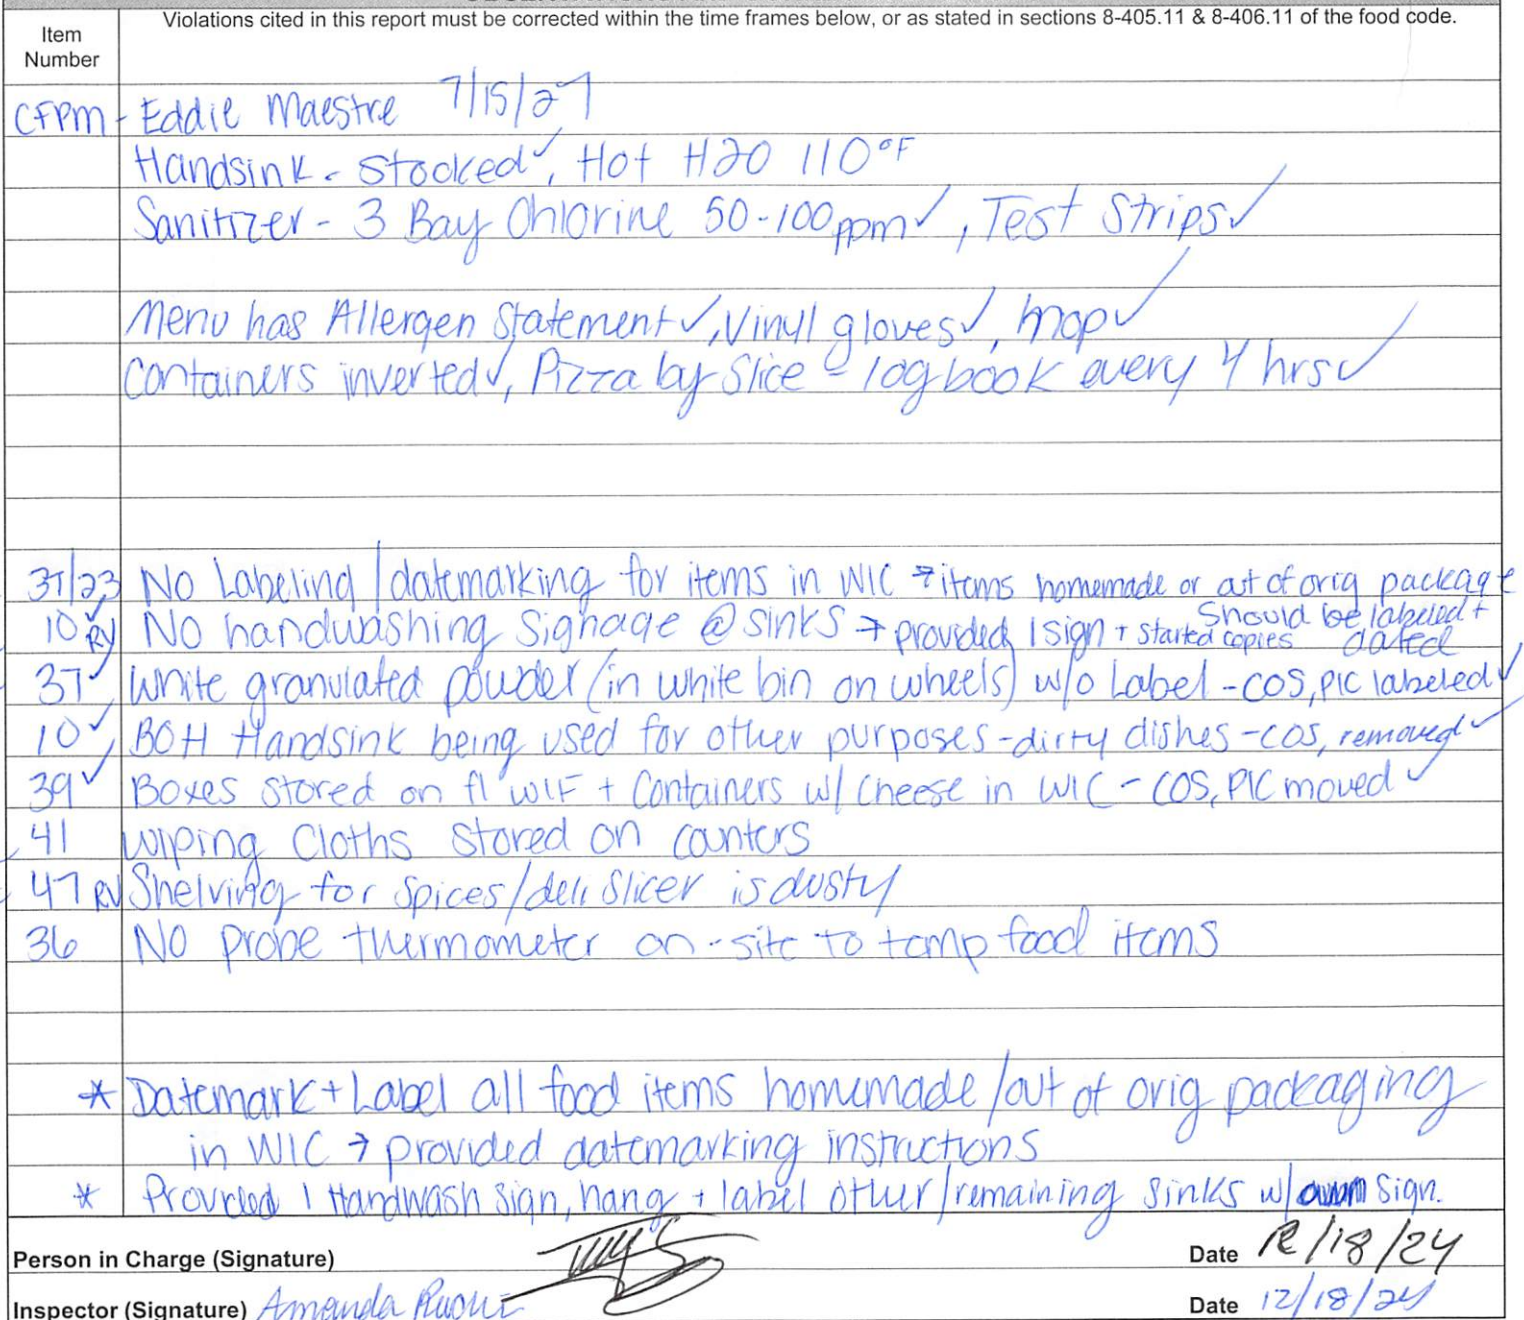 Violations cited in this report must be corrected within the time frames below, or as stated in sections 8-405.11 & 8-406.11 of the food code.
Item
Number
CFPM - Eddie Maestre 7/15/27
Handsink - Stocked✓, Hot H2O 110°F
Sanitizer - 3 Bay Chlorine 50-100ppm✓, Test Strips✓
Menu has Allergen Statement✓, Vinyl gloves✓, Mop✓
Containers inverted✓, Pizza by Slice - logbook every 4 hrs✓
37/23 No Labeling/datemarking for items in WIC → items homemade or out of orig package
should be labeled +
dated
10 ✓ RV No handwashing Signage @ sinks → provided 1 sign + started copies
37 ✓ White granulated powder (in white bin on wheels) w/o Label - COS, PIC labeled ✓
10 ✓ BOH Handsink being used for other purposes - dirty dishes - COS, removed ✓
39 ✓ Boxes stored on fl WIF + Containers w/ cheese in WIC - COS, PIC moved ✓
41 Wiping Cloths stored on counters
47 RV Shelving for spices/deli slicer is dusty
36 No probe thermometer on-site to temp food items
* Datemark + Label all food items homemade/out of orig packaging
in WIC → provided datemarking instructions
* Provided 1 Handwash sign, hang + label other/remaining sinks w/ sign.
Person in Charge (Signature) Date 12/18/24
Inspector (Signature) Amanda Date 12/18/24